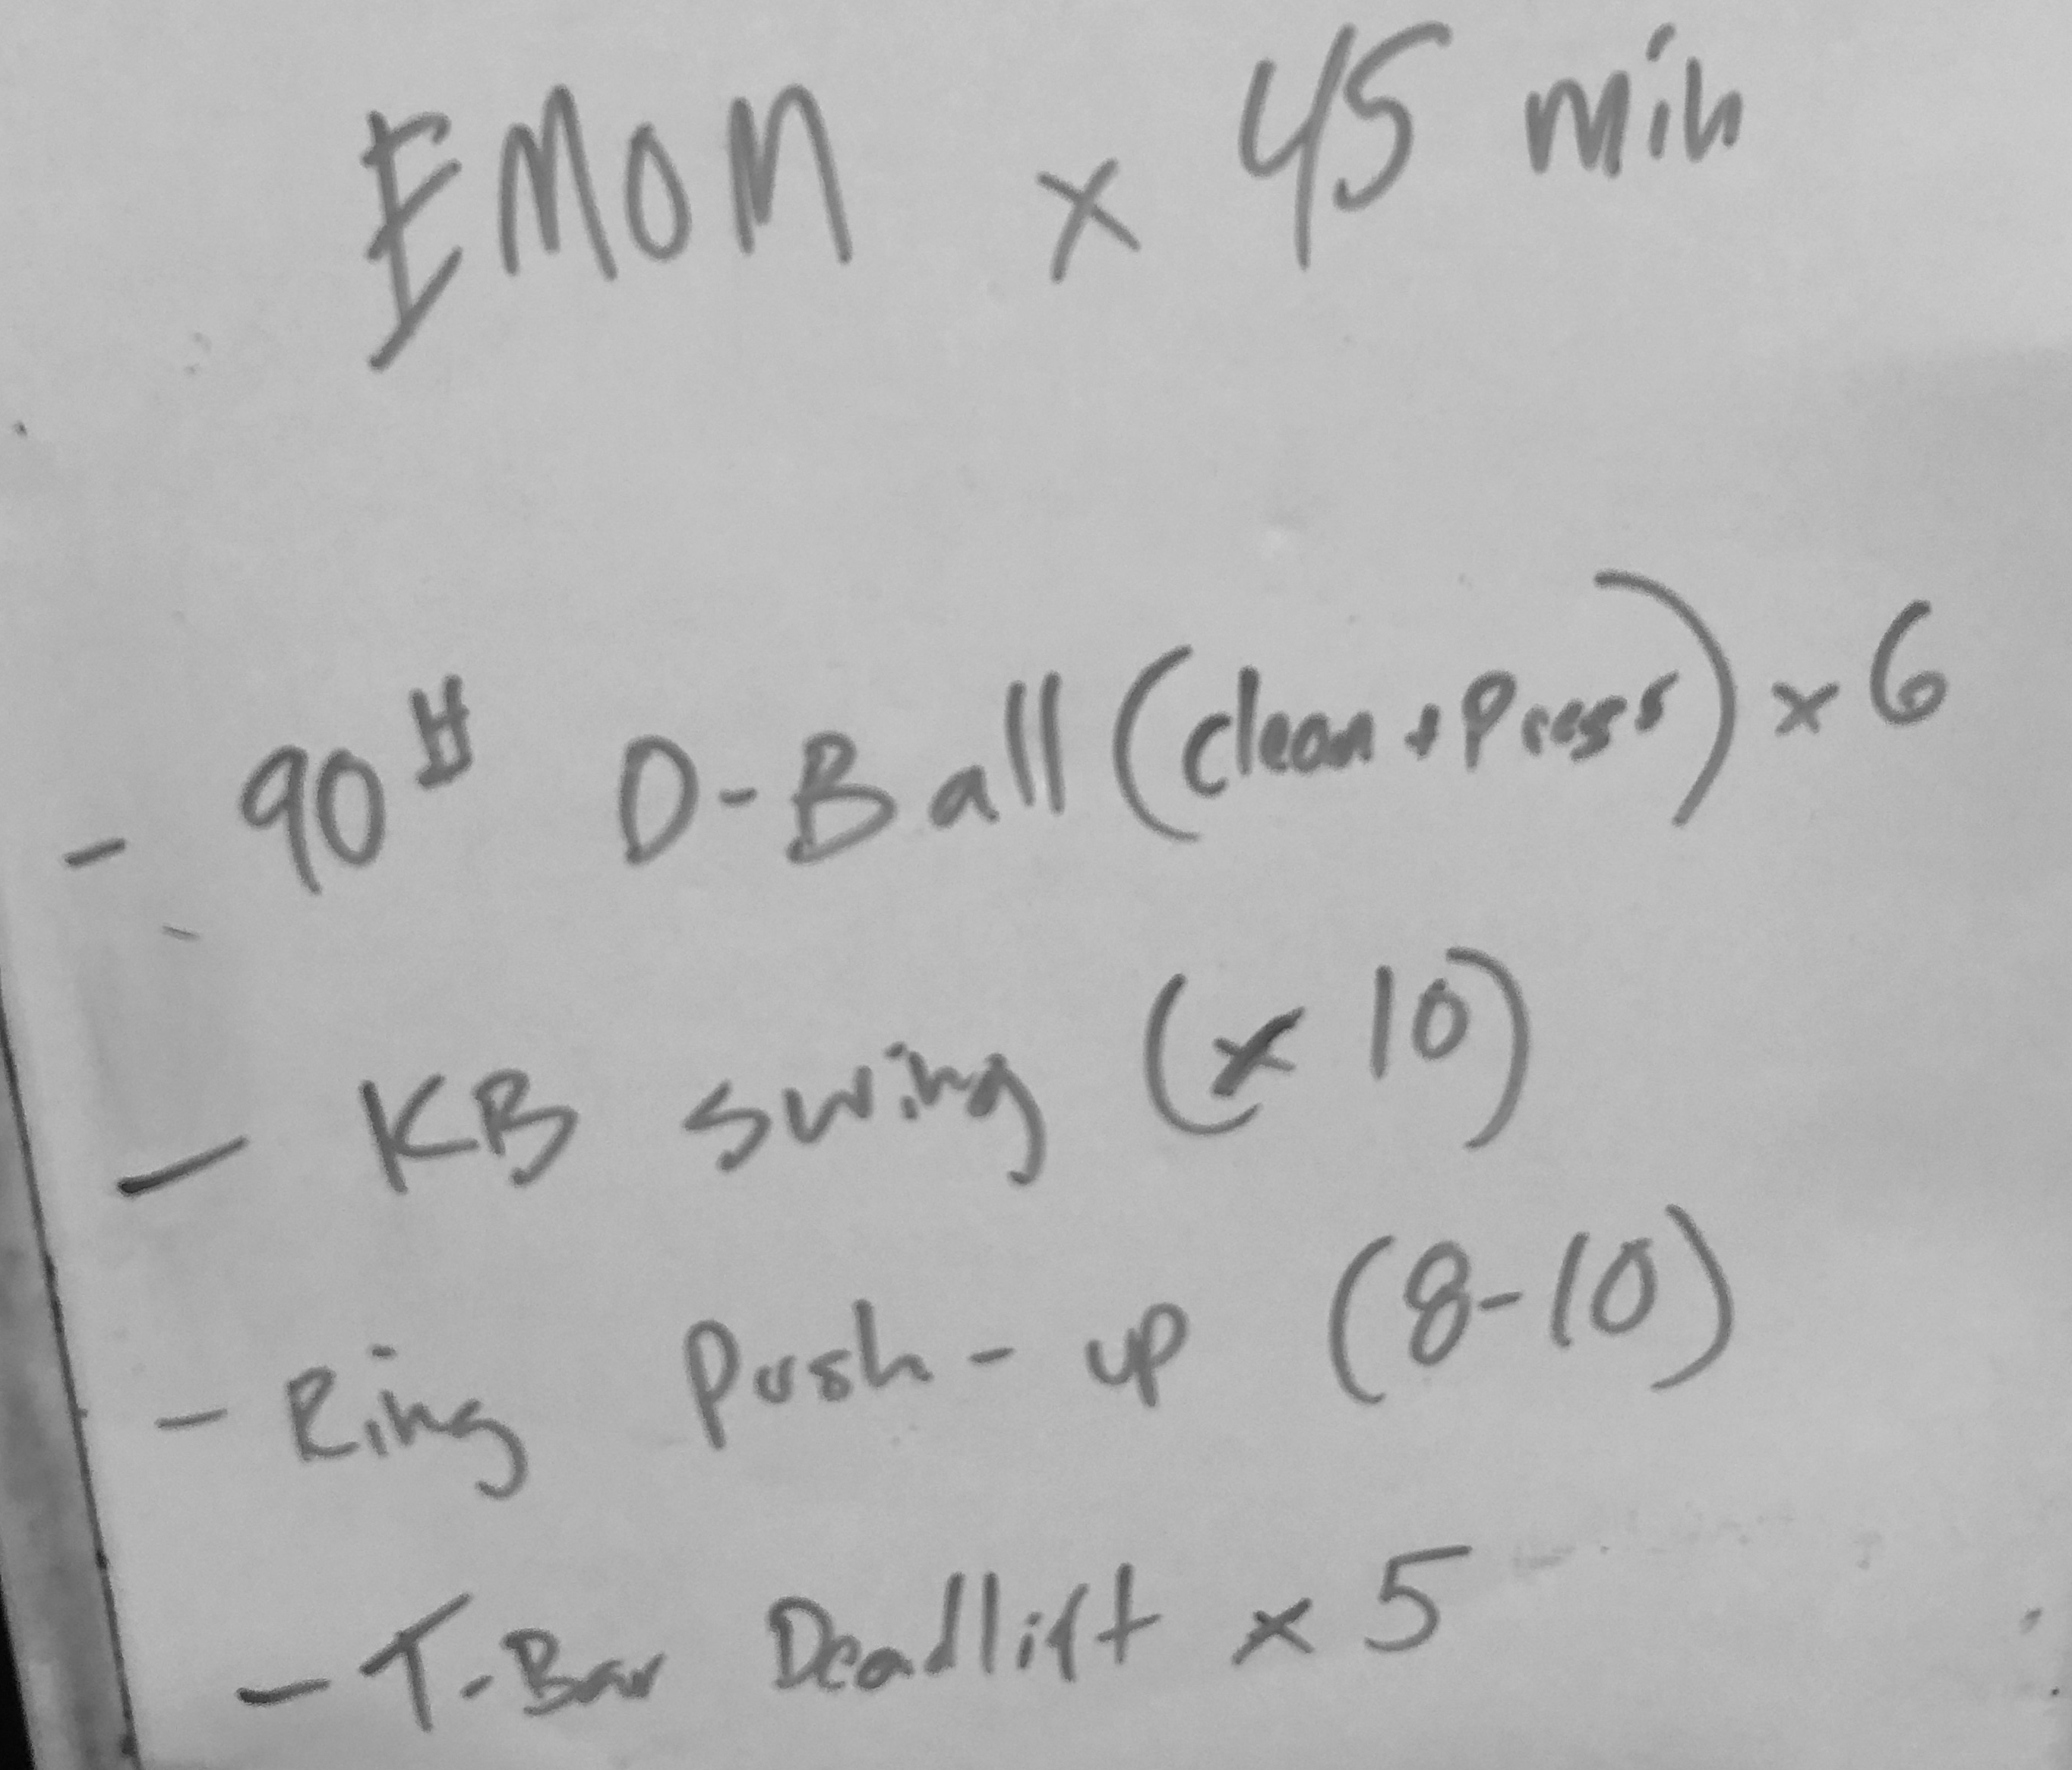 EMOM x 45 min
- 90# D-Ball (clean + Press) x 6
- KB swing (x 10)
- Ring Push-up (8-10)
- T-Bar Deadlift x 5